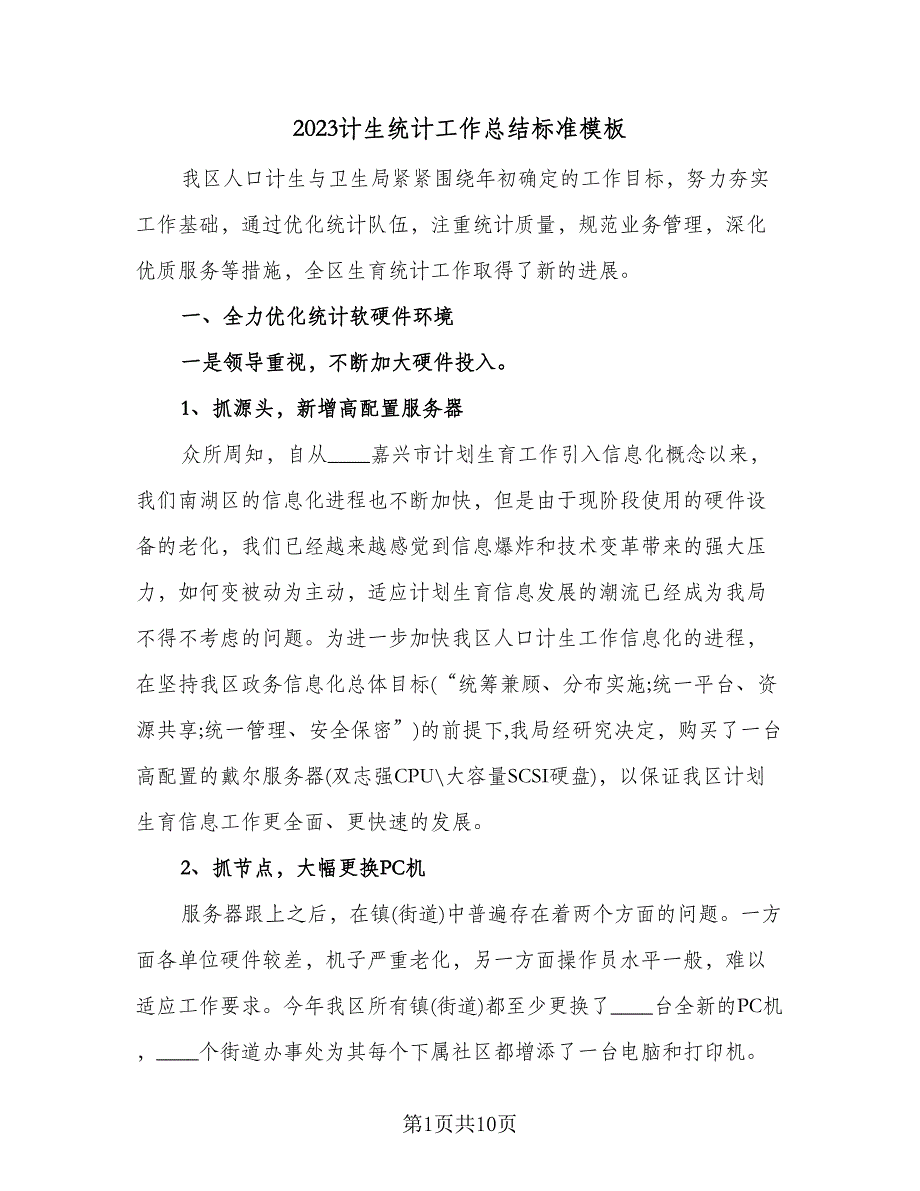 2023计生统计工作总结标准模板
我区人口计生与卫生局紧紧围绕年初确定的工作目标，努力夯实
工作基础，通过优化统计队伍，注重统计质量，规范业务管理，深化
优质服务等措施，全区生育统计工作取得了新的进展。
一、全力优化统计软硬件环境
一是领导重视，不断加大硬件投入。
1、抓源头，新增高配置服务器
众所周知，自从____嘉兴市计划生育工作引入信息化概念以来，
我们南湖区的信息化进程也不断加快，但是由于现阶段使用的硬件设
备的老化，我们已经越来越感觉到信息爆炸和技术变革带来的强大压
力，如何变被动为主动，适应计划生育信息发展的潮流已经成为我局
不得不考虑的问题。为进一步加快我区人口计生工作信息化的进程，
在坚持我区政务信息化总体目标(“统筹兼顾、分布实施;统一平台、资
源共享;统一管理、安全保密”)的前提下,我局经研究决定，购买了一台
高配置的戴尔服务器(双志强CPU\大容量SCSI硬盘)，以保证我区计划
生育信息工作更全面、更快速的发展。
2、抓节点，大幅更换PC机
服务器跟上之后，在镇(街道)中普遍存在着两个方面的问题。一方
面各单位硬件较差，机子严重老化，另一方面操作员水平一般，难以
适应工作要求。今年我区所有镇(街道)都至少更换了____台全新的PC机
，____个街道办事处为其每个下属社区都增添了一台电脑和打印机。
第1页共10页